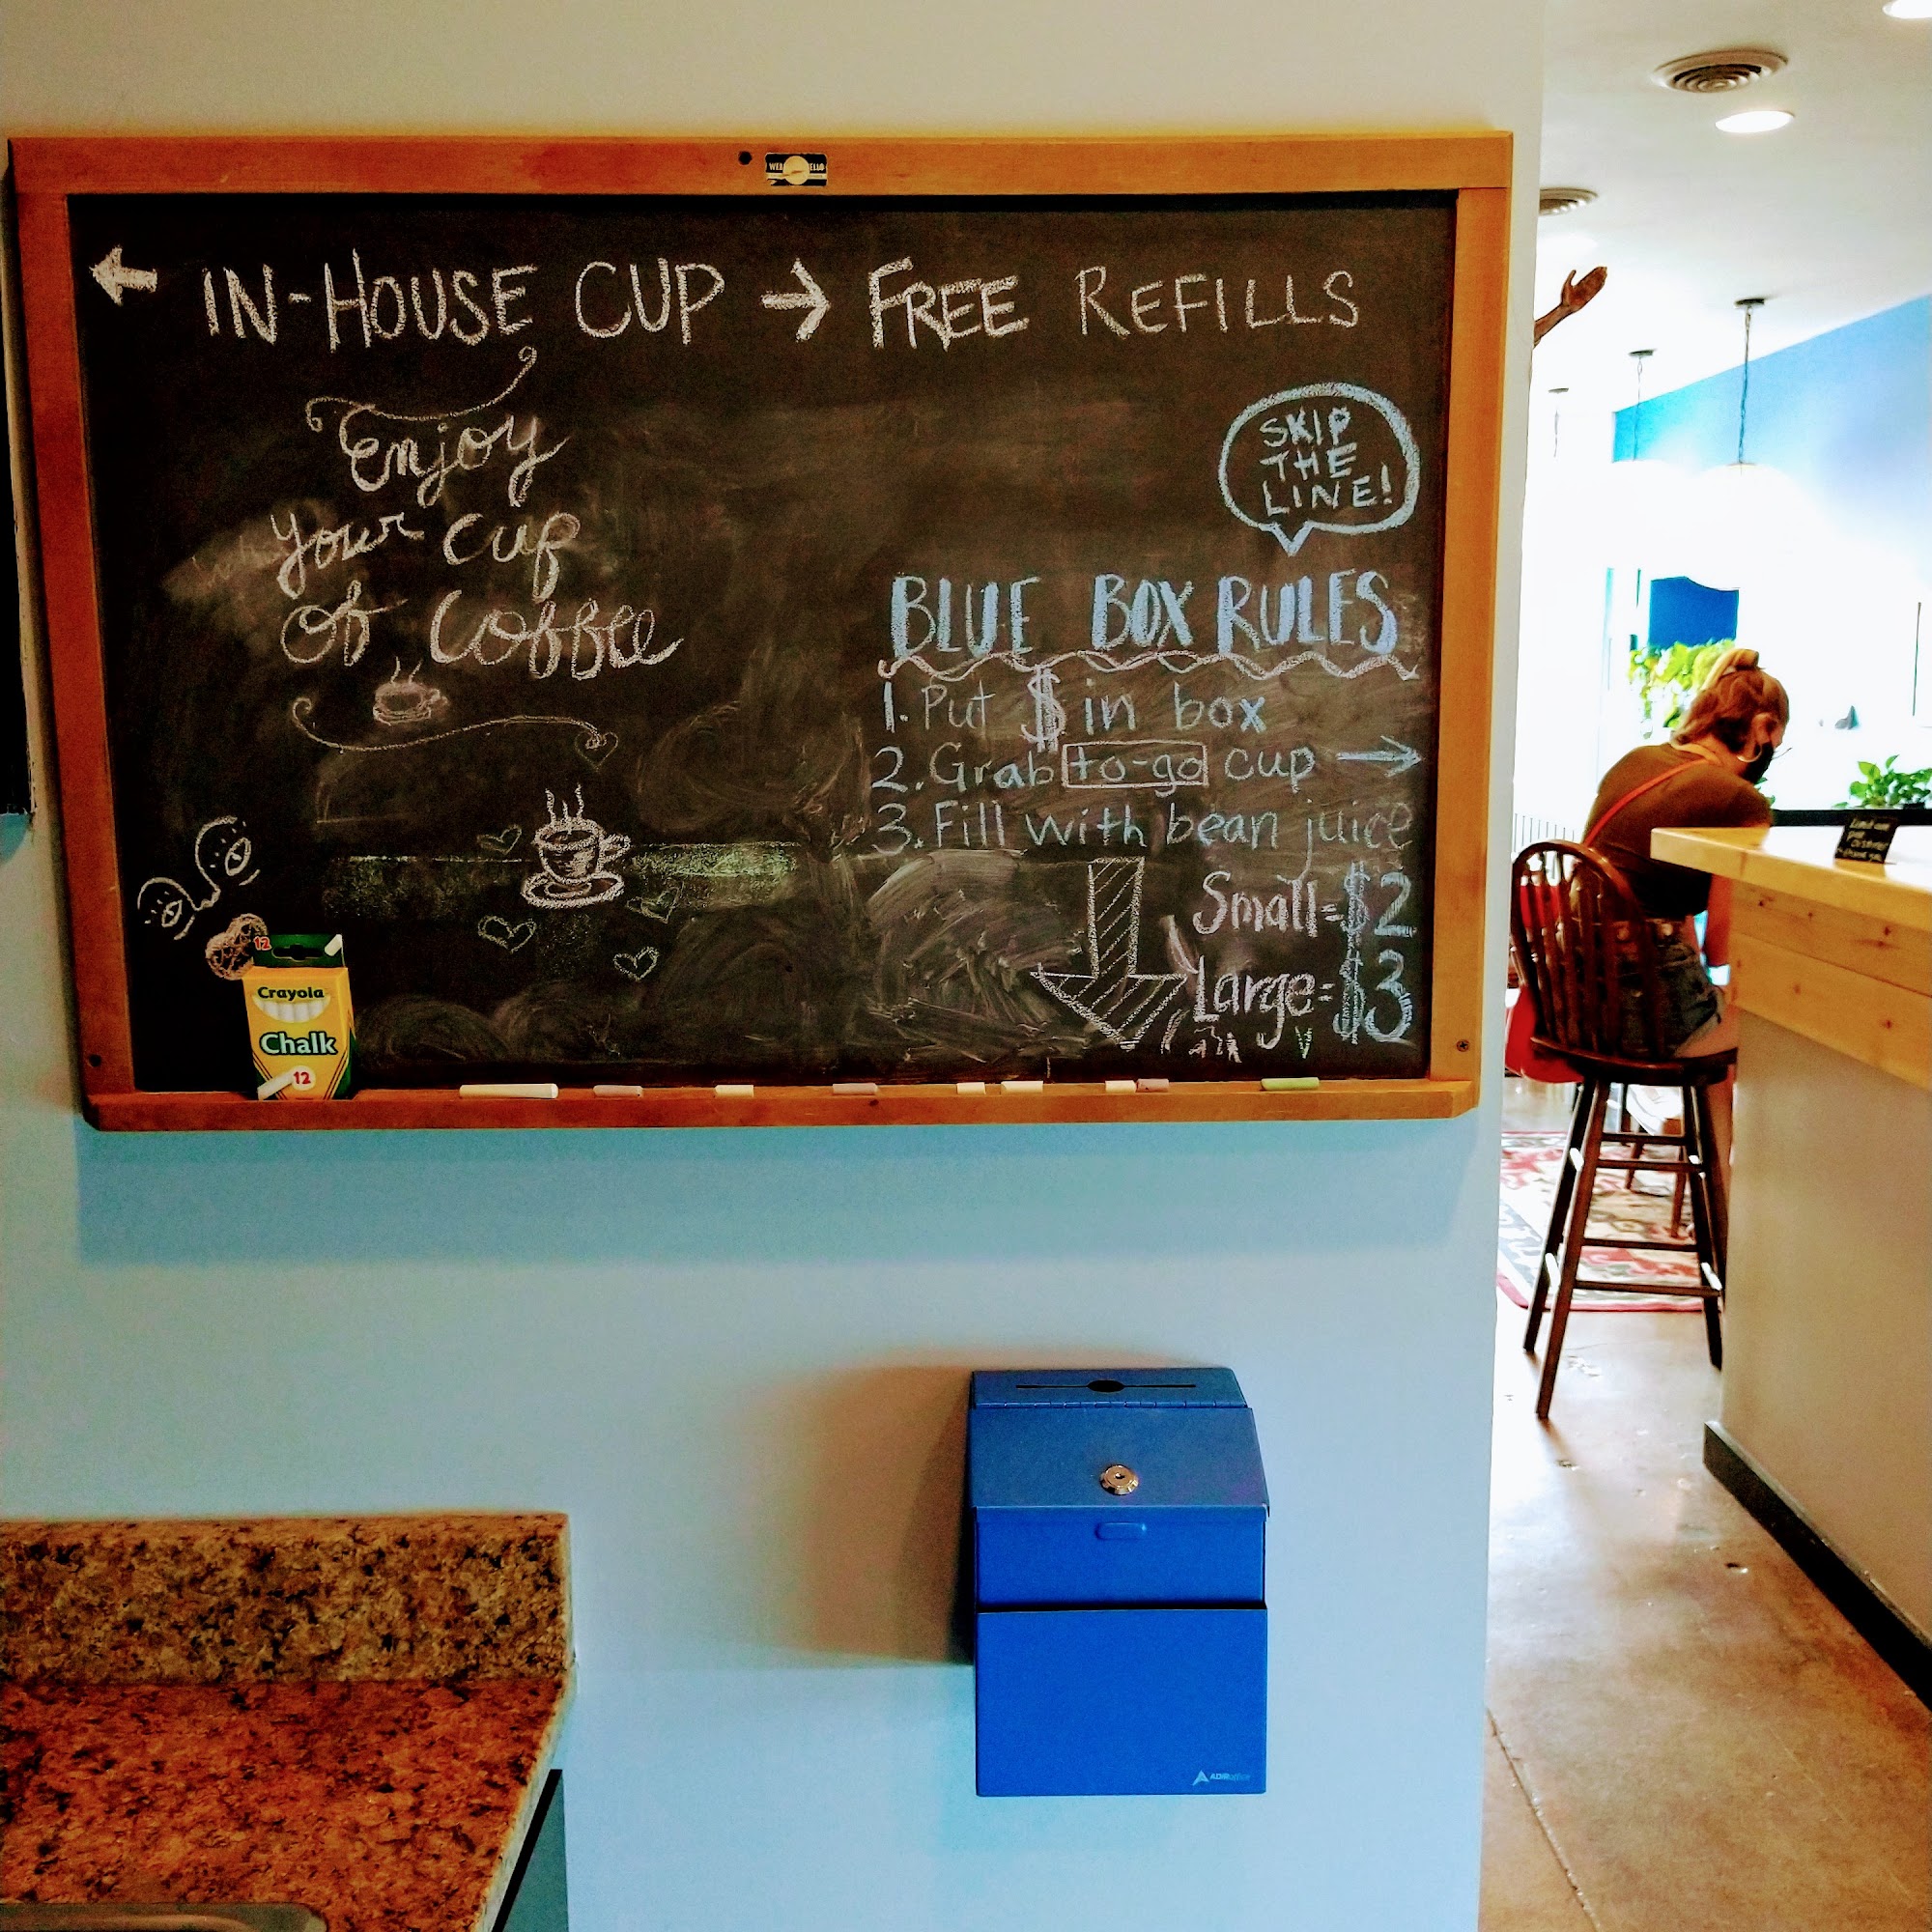 ← IN-HOUSE CUP → FREE REFILLS
Enjoy
your cup
of Coffee
SKIP
THE
LINE!
BLUE BOX RULES
1. Put $ in box
2. Grab to-go cup →
3. Fill with bean juice
Small = $2
Large = $3
12
Crayola
Chalk
12